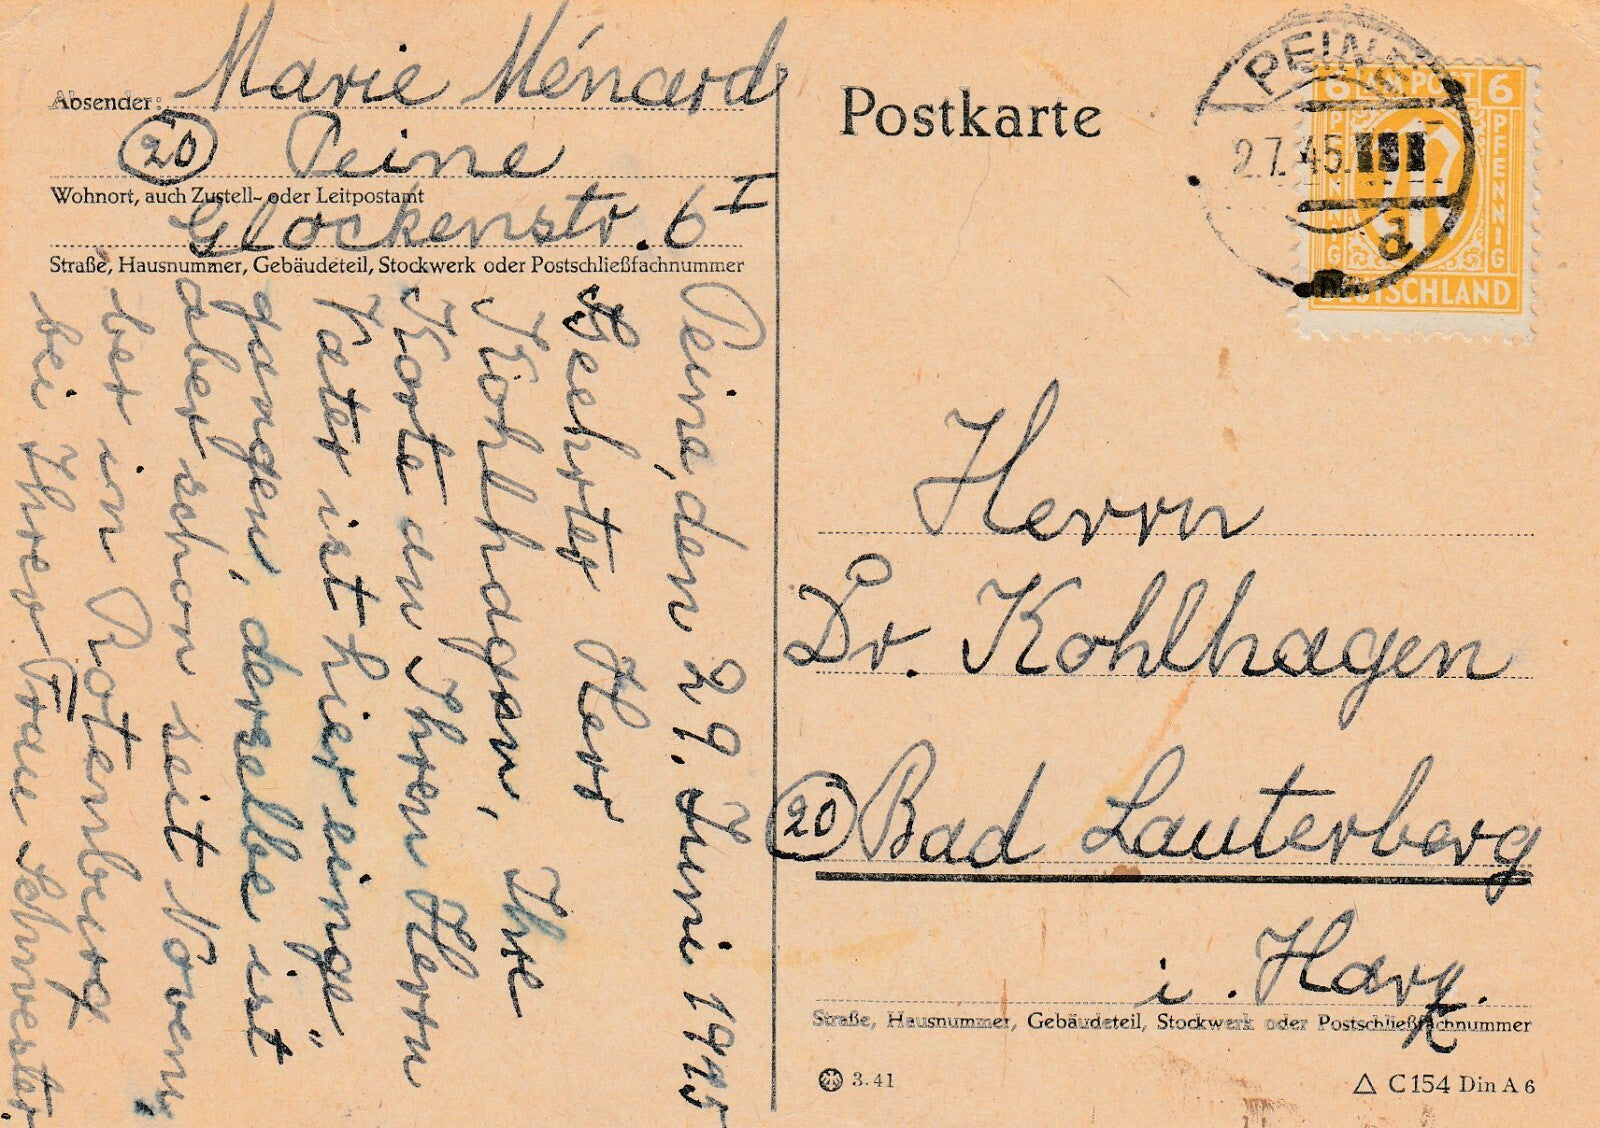 Marie Ménard
Absender:
20 Peine
Wohnort, auch Zustell- oder Leitpostamt
Glockenstr. 6 I
Straße, Hausnummer, Gebäudeteil, Stockwerk oder Postschließfachnummer
Peine, den 29. Juni 1945
Geehrter Herr
Kohlhagen, Ihre
Karte an Ihren Herrn
Vater ist hier einge„
gangen, derselbe ist
aber schon seit Novem„
ber in Rotenberg
bei Ihrer Frau Schwester.
Postkarte
PEINE
2.7.45
a
6 AM POST 6
PFENNIG
PFENNIG
DEUTSCHLAND
Herrn
Dr. Kohlhagen
20 Bad Lauterberg
i. Harz.
Straße, Hausnummer, Gebäudeteil, Stockwerk oder Postschließfachnummer
3.41
C 154 Din A 6